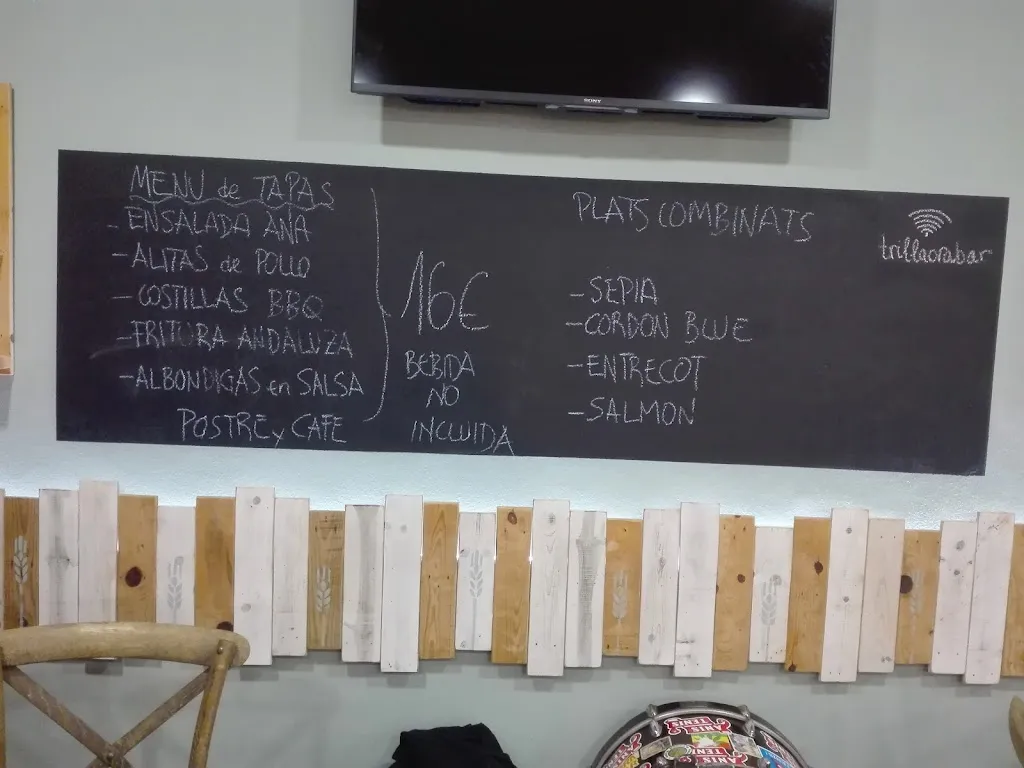 SONY
MENU de TAPAS
- ENSALADA ANA
- ALITAS de POLLO
- COSTILLAS BBQ
- FRITURA ANDALUZA
- ALBONDIGAS en SALSA
POSTRE y CAFE
16€
BEBIDA
NO
INCLUIDA
PLATS COMBINATS
- SEPIA
- CORDON BLUE
- ENTRECOT
- SALMON
trillaorabar
ANIS
TENIS
ANIS
TENIS